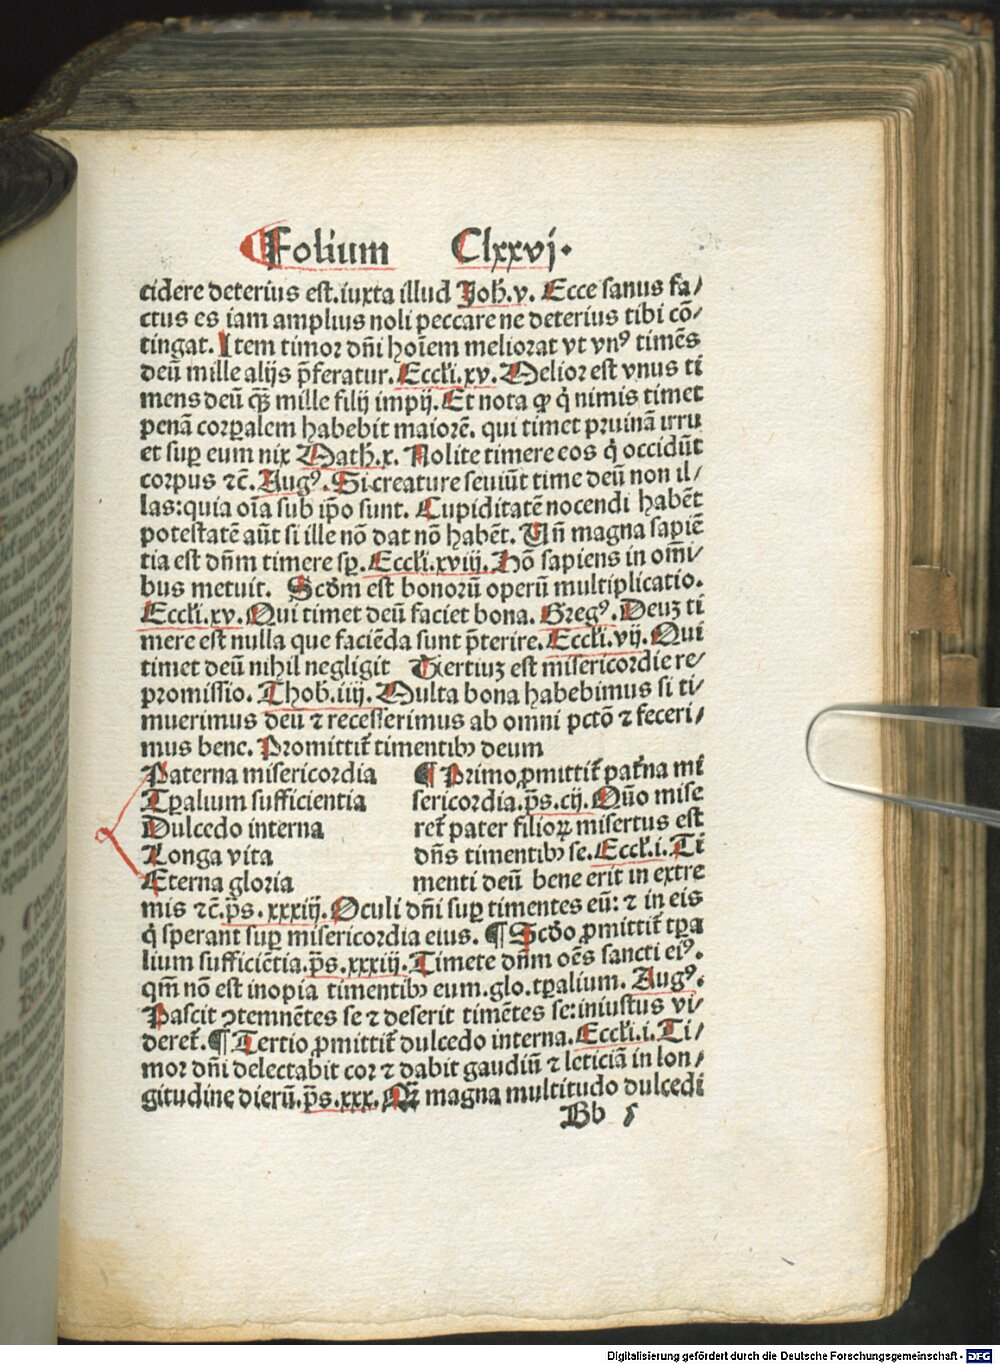 Folium Clxxvj.
cidere deterius est. iuxta illud Joh̄. v. Ecce sanus fa/
ctus es iam amplius noli peccare ne deterius tibi cō/
tingat. Item timor dn̄i hoīem meliorat vt vnꝰ timēs
deū mille alijs p̄feratur. Eccl̄i. xv. Melior est vnus ti
mens deū q̄ꝫ mille filij impij. Et nota ꝙ q̇ nimis timet
penā corꝑalem habebit maiorē. qui timet pruinā irru
et suꝑ eum nix Math̄. x. Nolite timere eos q̇ occidūt
corpus ⁊c̄. Augꝰ. Si creature seuiūt time deū non il/
las: quia oīa sub ip̄o sunt. Cupiditatē nocendi habēt
potestatē aūt si ille nō dat nō habēt. Un̄ magna sapiē
tia est dn̄m timere sꝑ. Eccl̄i. xviij. Hō sapiens in om̄i/
bus metuit. Scd̄m est bonorū operū multiplicatio.
Eccl̄i. xv. Qui timet deū faciet bona. Gregꝰ. Deuꝫ ti
mere est nulla que faciēda sunt p̄terire. Eccl̄i. vij. Qui
timet deū nihil negligit Tertiuꝫ est misericordie re/
promissio. Thob̄. iiij. Multa bona habebimus si ti/
muerimus deū ⁊ recesserimus ab omni pctō ⁊ feceri/
mus bene. Promittit̄ timentibꝫ deum
Paterna misericordia
Tꝑalium sufficientia
Dulcedo interna
Longa vita
Eterna gloria
¶ Primo ꝓmittit̄ pat̄na mi
sericordia. p̄s. cij. Quō mise
ret̄ pater filioꝝ misertus est
dn̄s timentibꝫ se. Eccl̄i. i. Ti
menti deū bene erit in extre
mis ⁊c̄. p̄s. xxxiij. Oculi dn̄i suꝑ timentes eū: ⁊ in eis
q̇ sperant suꝑ misericordia eius. ¶ Scd̄o ꝓmittit̄ tꝑa
lium sufficiētia. p̄s. xxxiij. Timete dn̄m oēs sancti eiꝰ.
qm̄ nō est inopia timentibꝫ eum. glo. tꝑalium. Augꝰ.
Pascit ꝯtemnētes se ⁊ deserit timētes se: iniustus vi/
deret̄. ¶ Tertio ꝓmittit̄ dulcedo interna. Eccl̄i. i. Ti/
mor dn̄i delectabit cor ⁊ dabit gaudiū ⁊ leticiā in lon/
gitudine dierū. p̄s. xxx. magna multitudo dulcedi
Bb
Digitalisierung gefördert durch die Deutsche Forschungsgemeinschaft - DFG